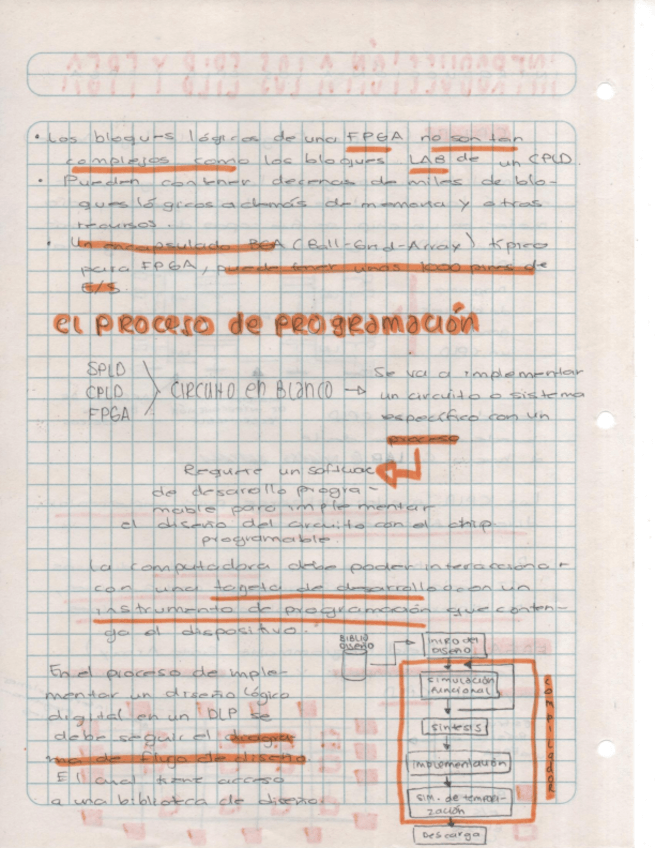 • Los bloques lógicos de una FPGA no son tan
complejos como los bloques LAB de un CPLD.
• Pueden contener decenas de miles de blo-
ques lógicos además de memoria y otros
recursos.
• Un encapsulado BGA (Ball-Grid-Array) típico
para FPGA, puede tener unos 1000 pines de
E/S.
el PROCESO de PROGRamación
SPLD
CPLD
FPGA
CIRCUITO en BLANCO →
Se va a implementar
un circuito o sistema
específico con un
proceso
Requiere un software
de desarollo progra-
mable para implementar
el diseño del circuito con el chip
programable.
La computadora debe poder interaccionar
con una tarjeta de desarrollo o con un
instrumento de programación que conten-
ga el dispositivo.
BIBLIO
DISEÑO
INTRO del
DISEÑO
simulación
funcional
síntesis
implementación
sim. de tempori-
zación
Descarga
COMPILADOR
En el proceso de imple-
mentar un diseño lógico
digital en un DLP se
debe seguir el diagra-
ma de flujo de diseño.
El cual tiene acceso
a una biblioteca de diseño.